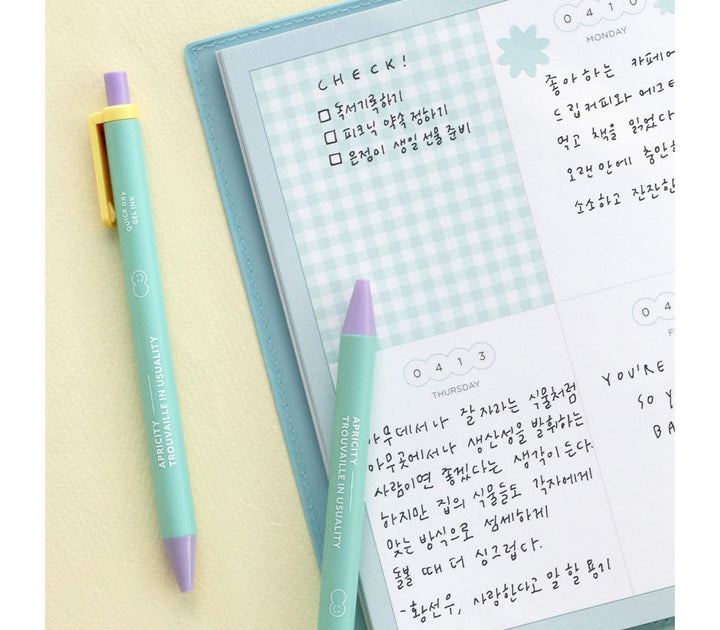 CHECK!
독서기록하기
피크닉 약속 정하기
은정이 생일 선물 준비
0410
MONDAY
좋아하는 카페에
드립커피와
먹고 책을 읽었다
오랜만에
소소하고 잔잔한
0413
THURSDAY
아무데서나 잘 자라는 식물처럼
아무곳에서나 생산성을 발휘하는
사람이면 좋겠다는 생각이 든다.
하지만 집의 식물들도 각자에게
맞는 방식으로 섬세하게
돌볼 때 더 싱그럽다.
- 황선우, 사랑한다고 말할 용기
04
F
YOU'RE
SO Y
BA
QUICK DRY
GEL INK
APRICITY
TROUVAILLE IN USUALITY
APRICITY
TROUVAILLE IN USUALITY